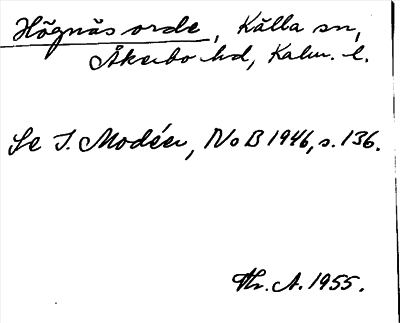 Högnäs orde, Källa sn,
Åkerbo hd, Kalm. l.
Se I. Modéer, NoB 1946, s. 136.
Thr. A. 1955.